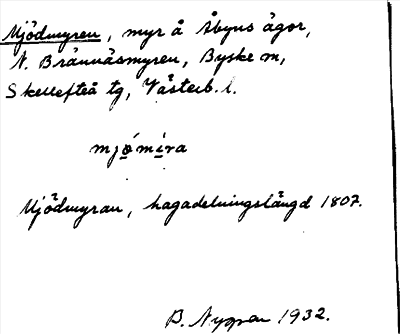 Mjödmyren, myr å Åbyns ägor,
N. Brännäsmyren, Byske sn,
Skellefteå tg, Västerb. l.
mjömira
Mjödmyran, hagadelningslängd 1807.
B. Nygren 1932.